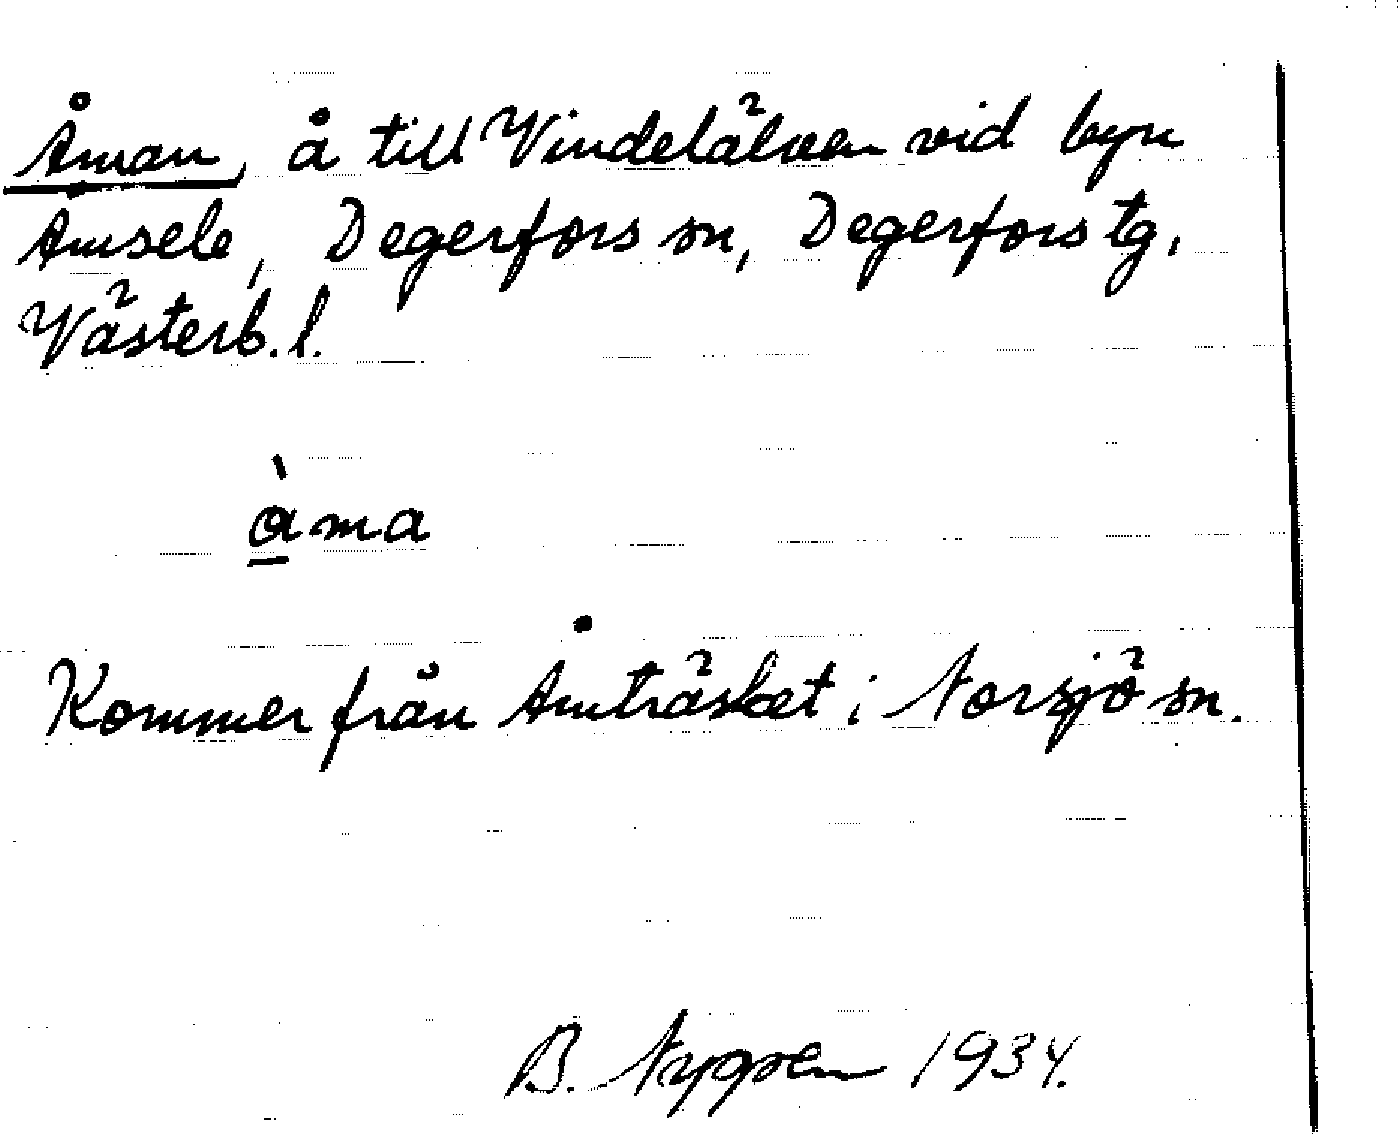 Åman, å till Vindelälven vid byn
Åmsele, Degerfors sn, Degerfors tg,
Västerb. l.
àma
Kommer från Åmträsket i Norsjö sn.
B. Nygren 1934.